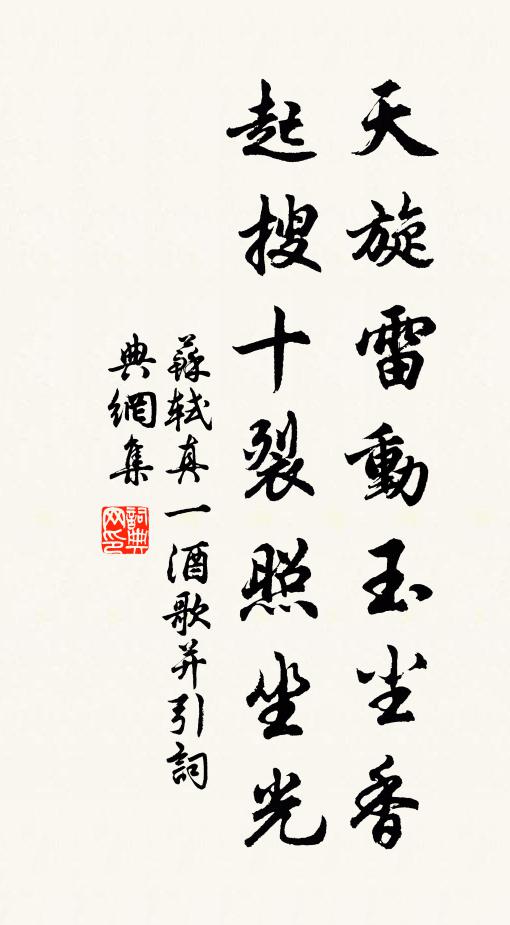 天旋雷動玉尘香
起搜十裂照坐光
蘇軾真一酒歌并引詞
典網集
詞典
网印